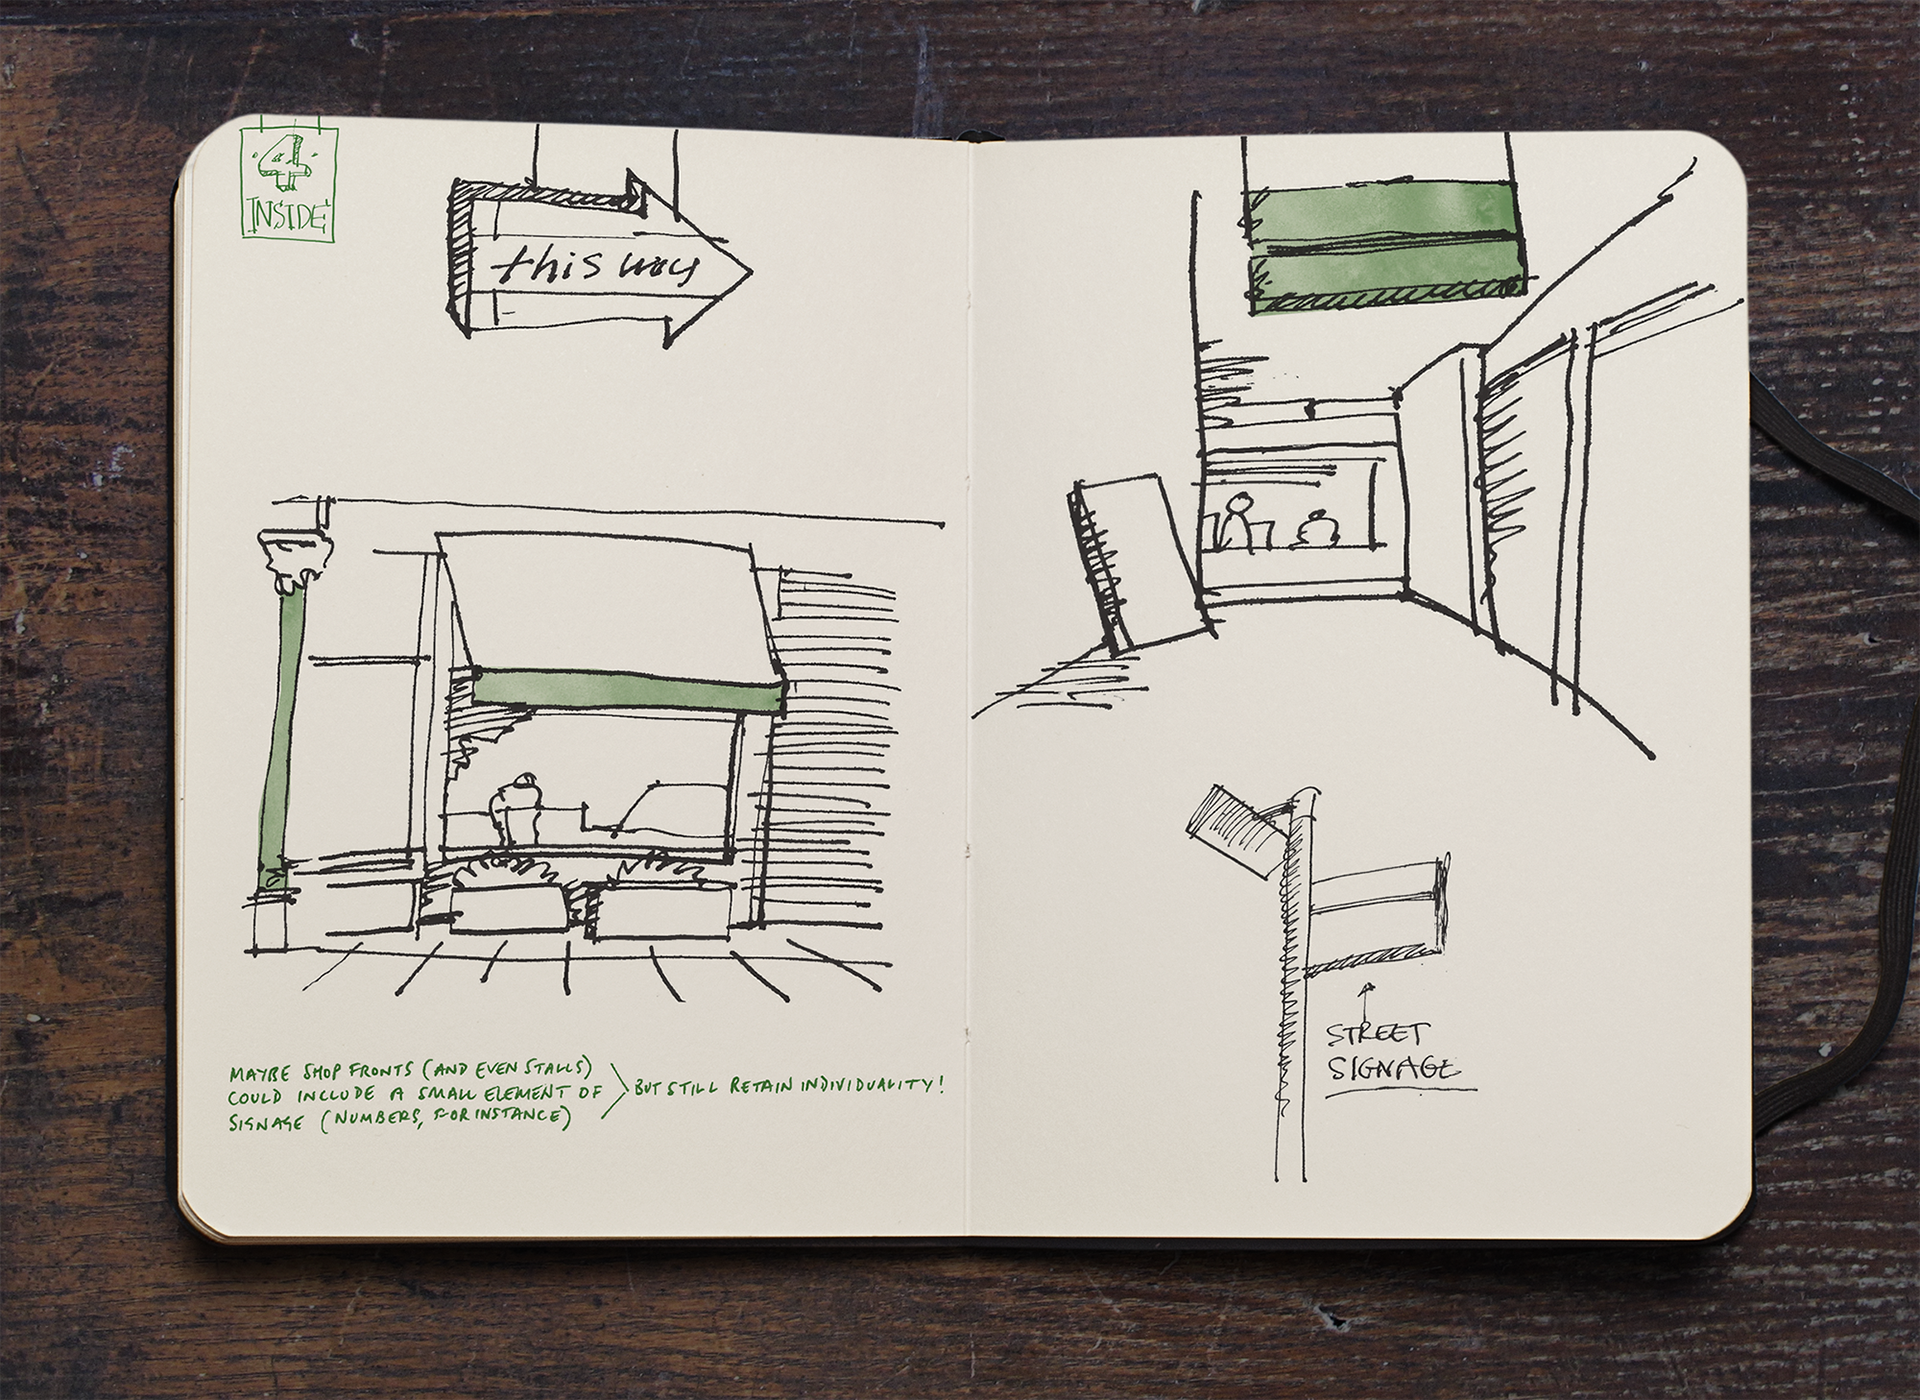 4
INSIDE
this way
MAYBE SHOP FRONTS (AND EVEN STALLS)
COULD INCLUDE A SMALL ELEMENT OF
SIGNAGE (NUMBERS, FOR INSTANCE)
BUT STILL RETAIN INDIVIDUALITY!
STREET
SIGNAGE